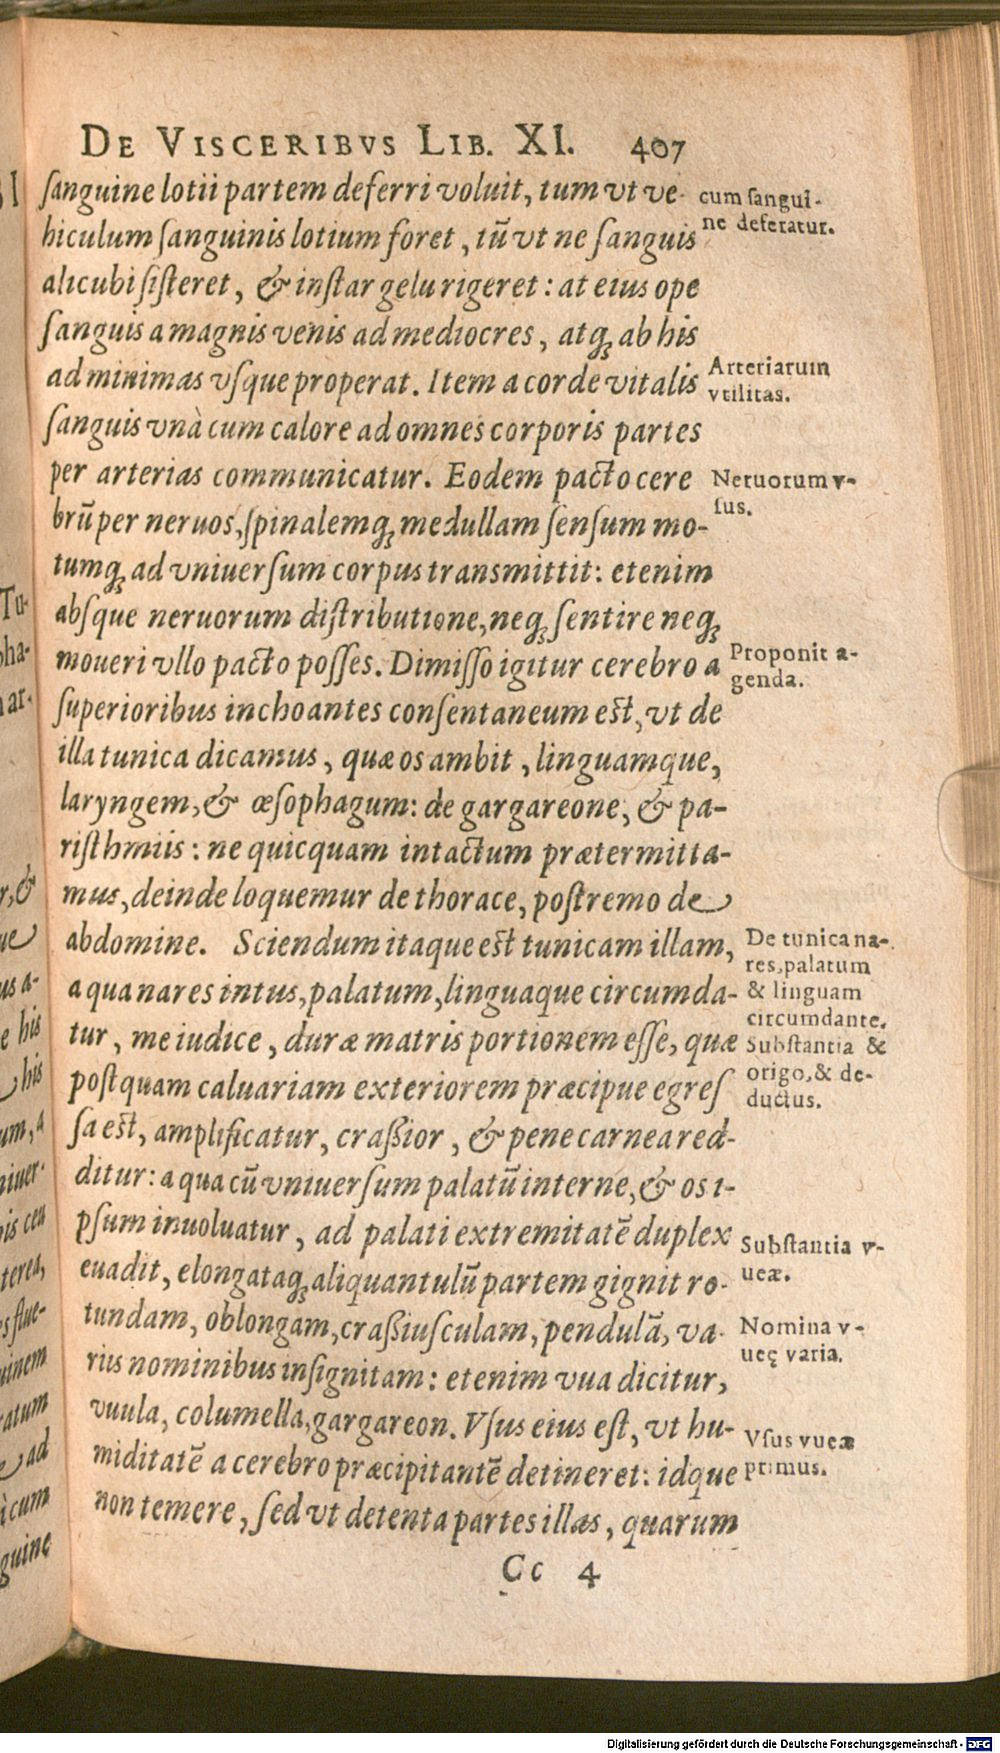 DE VISCERIBVS LIB. XI. 407
ſanguine lotii partem deferri voluit, tum vt ve-
hiculum ſanguinis lotium foret, tũ vt ne ſanguis
alicubi ſiſteret, & inſtar gelu rigeret: at eius ope
ſanguis a magnis venis ad mediocres, atq; ab his
ad minimas vſque properat. Item a corde vitalis
ſanguis vnà cum calore ad omnes corporis partes
per arterias communicatur. Eodem pacto cere
brũ per neruos, ſpinalemq; medullam ſenſum mo-
tumq; ad vniuerſum corpus transmittit: etenim
abſque neruorum diſtributione, neq; ſentire neq;
moueri vllo pacto poſſes. Dimiſſo igitur cerebro a
ſuperioribus inchoantes conſentaneum est, vt de
illa tunica dicamus, quæ os ambit, linguamque,
laryngem, & œſophagum: de gargareone, & pa-
riſthmiis: ne quicquam intactum prætermitta-
mus, deinde loquemur de thorace, poſtremo de
abdomine. Sciendum itaque est tunicam illam,
a qua nares intus, palatum, linguaque circumda-
tur, me iudice, duræ matris portionem eſſe, quæ
poſtquam caluariam exteriorem præcipue egreſ
ſa est, amplificatur, craßior, & pene carnea red-
ditur: a qua cũ vniuerſum palatũ interne, & os i-
pſum inuoluatur, ad palati extremitatẽ duplex
euadit, elongataq; aliquantulũ partem gignit ro-
tundam, oblongam, craßiuſculam, pendulã, va-
riis nominibus inſignitam: etenim vua dicitur,
vuula, columella, gargareon. Vſus eius eſt, vt hu-
miditatẽ a cerebro præcipitantẽ detineret: idque
non temere, ſed vt detenta partes illas, quarum
Cc 4
cum ſangui-
ne deferatur.
Arteriarum
vtilitas.
Neruorum v-
ſus.
Proponit a-
genda.
De tunica na-
res, palatum
& linguam
circumdante.
Subſtantia &
origo, & de-
ductus.
Subſtantia v-
ueæ.
Nomina v-
ueę varia.
Vſus vueæ
primus.
Tu-
pha-
nar-
r, &
ue
us a-
e his
his
um, a
niuer-
is ceu
terea,
s flue-
uinem
ratum
ad
icum
guine
Digitalisierung gefördert durch die Deutsche Forschungsgemeinschaft - DFG